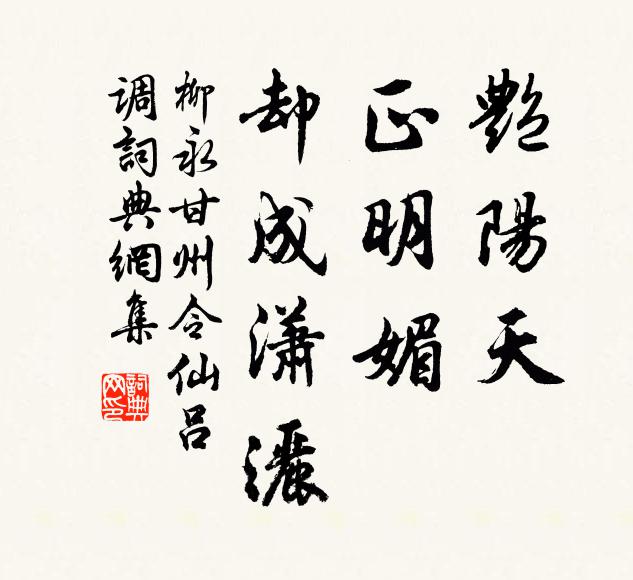 艷陽天
正明媚
却成瀟灑
柳永甘州令仙呂
調詞典網集
詞典
网印